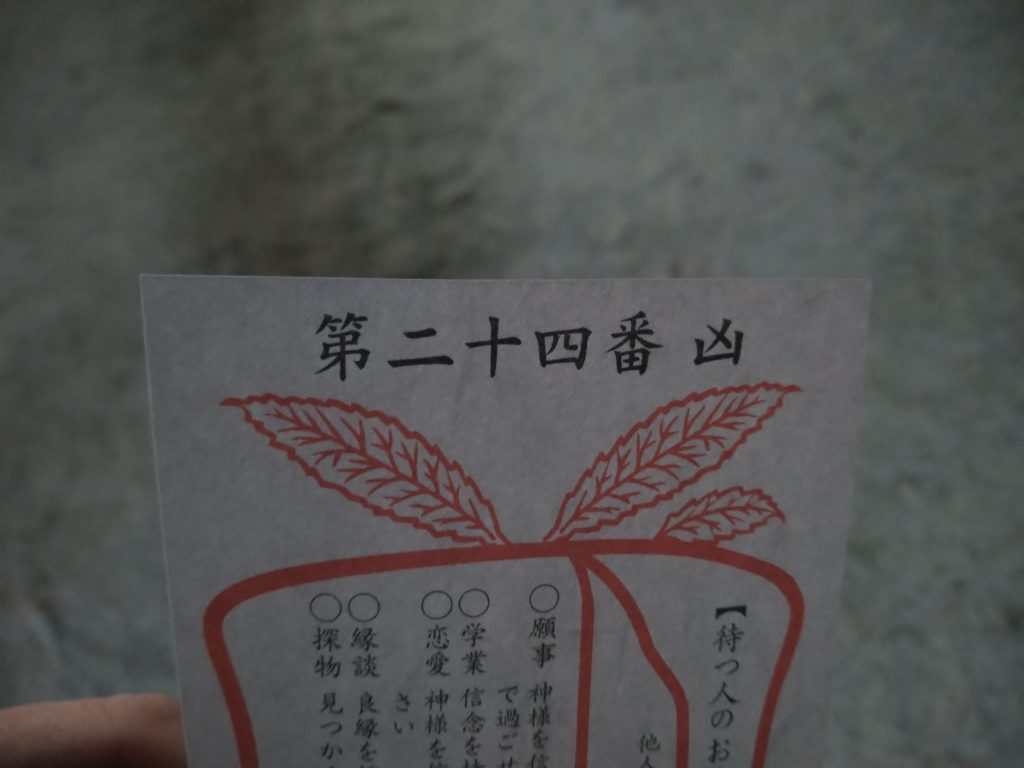 第二十四番 凶
【待つ人のお
他人
○願事 神様を信
で過ごせ
○学業 信念を持
○恋愛 神様を信
さい
○縁談 良縁を
○探物 見つか